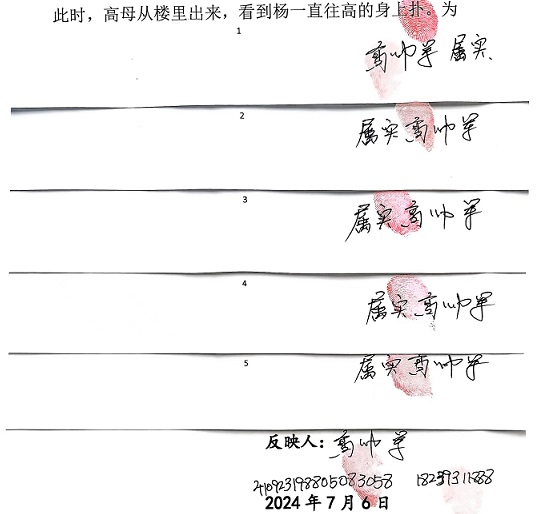 此时，高母从楼里出来，看到杨一直往高的身上扑。为
1
高帅军 属实.
2
属实 高帅军
3
属实 高帅军
4
属实 高帅军
5
属实 高帅军
反映人：高帅军
2024年7月6日